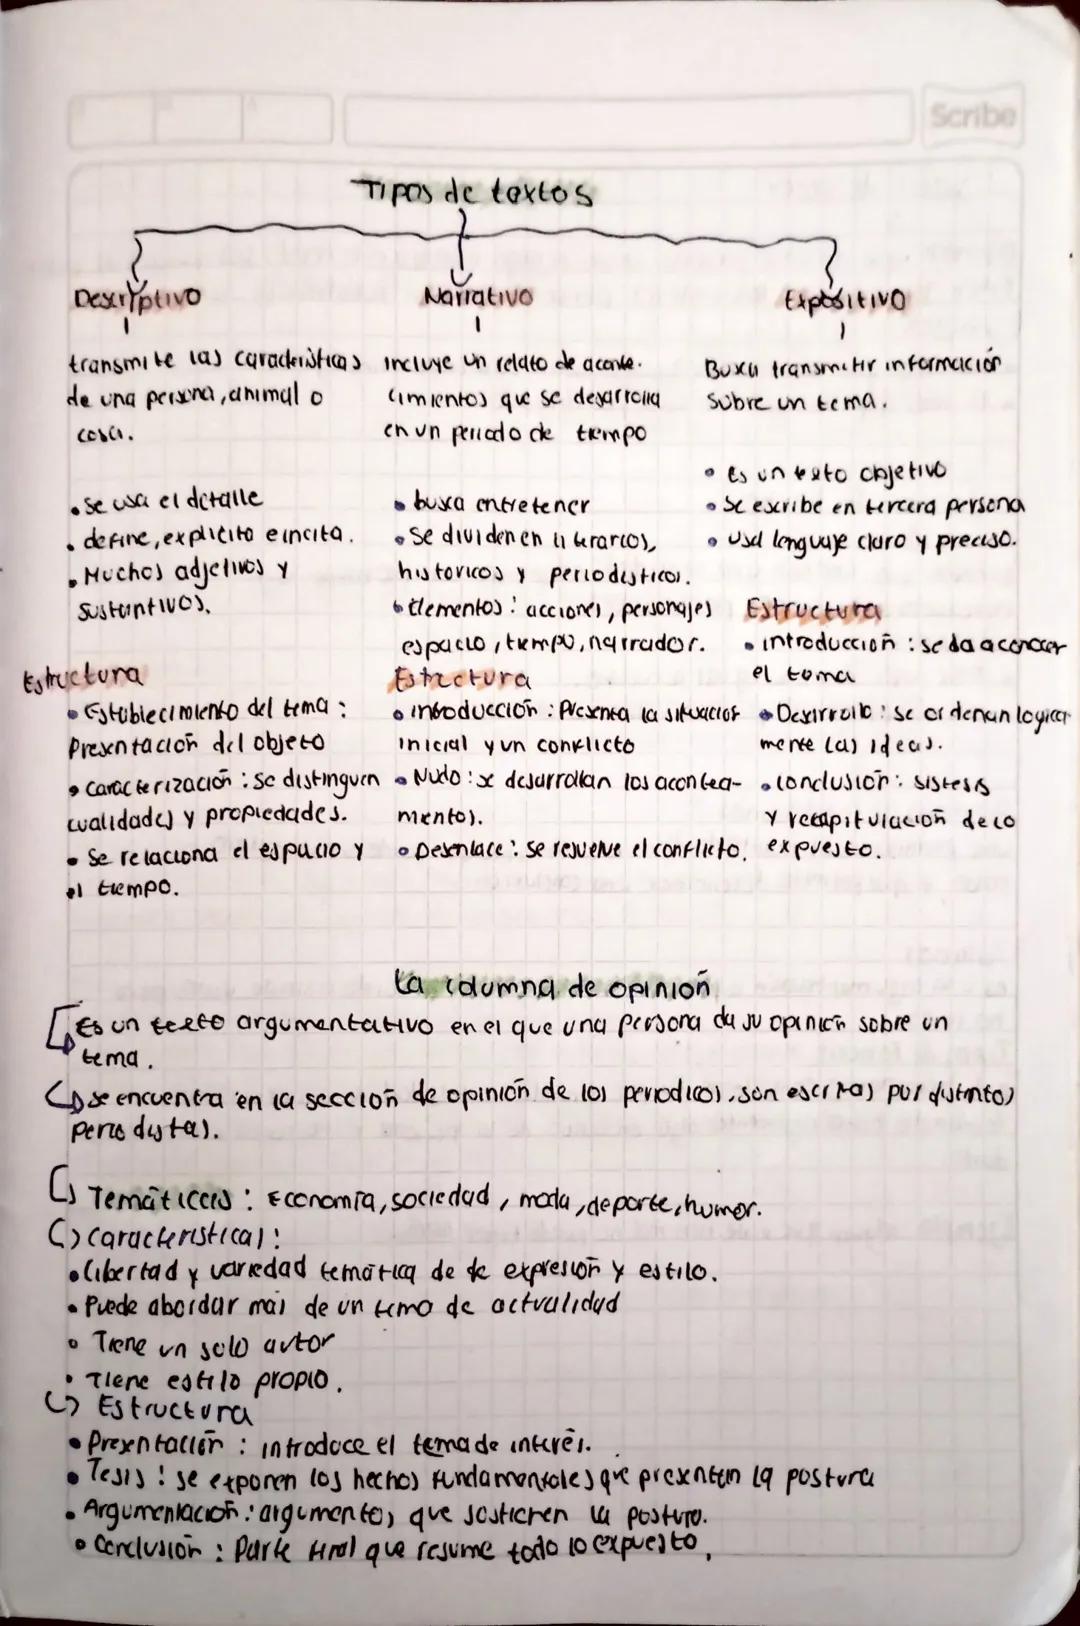 Scribe
Tipos de textos
Descriptivo
transmite las características
de una persona, animal o
cosa.
• Se usa el detalle
• define, explícito e incita.
• Muchos adjetivos y
sustantivos.
Estructura
• Establecimiento del tema :
Presentación del objeto
• caracterización : se distinguen
cualidades y propiedades.
• Se relaciona el espacio y
el tiempo.
Narrativo
incluye un relato de aconte-
cimientos que se desarrolla
en un periodo de tiempo
• busca entretener
• Se dividen en literarios,
historicos y periodisticos.
• Elementos : acciones, personajes
espacio, tiempo, narrador.
Estrctura
• introducción : Presenta la situación
inicial y un conflicto
• Nudo : se desarrollan los acontea-
mientos.
• Desenlace : se resuelve el conflicto.
Expositivo
Busca transmitir información
sobre un tema.
• Es un texto objetivo
• Se escribe en tercera persona
• usa lenguaje claro y preciso.
Estructura
• introducción : se da a conocer
el tema
• Desarrollo : se ordenan logica
mente las ideas.
• conclusión : sistesis
y recapitulación de lo
expuesto.
La columna de opinión
Es un texto argumentativo en el que una persona da su opinión sobre un
tema.
se encuentra en la sección de opinión de los periodicos, son escritas por distintos
periodistas.
Temáticas : Economía, sociedad, moda, deporte, humor.
características :
• Libertad y variedad temática de de expresión y estilo.
• Puede abordar más de un tema de actualidad
• Tiene un solo autor
• Tiene estilo propio.
Estructura
• Presentación : introduce el tema de interés.
• Tesis : se exponen los hechos fundamentales que presentan la postura
• Argumentación : argumentos que sostienen la postura.
• Conclusión : Parte final que resume todo lo expuesto.